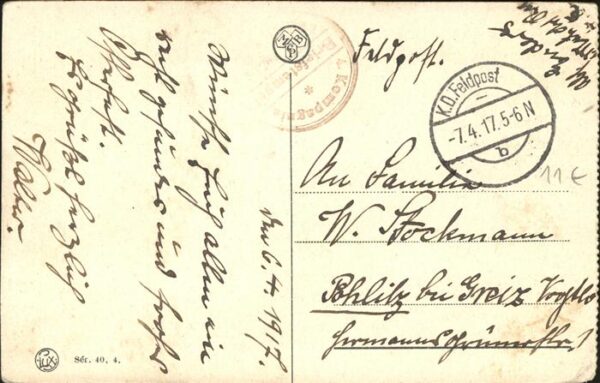 den 6. 4. 1917.
Wünsche Euch allen ein
recht gesundes und frohes
Osterfest.
Es grüßt herzlich
Walter.
Feldpost.
K.D. Feldpost
-7.4.17.5-6N
b
. Kompagnie
Briefstempel
MBP
11 €
An Familie
W. Stockmann
Pohlitz bei Greiz Vogtld
Hermannsgrünerstr 1
LUX
Sér. 40, 4.